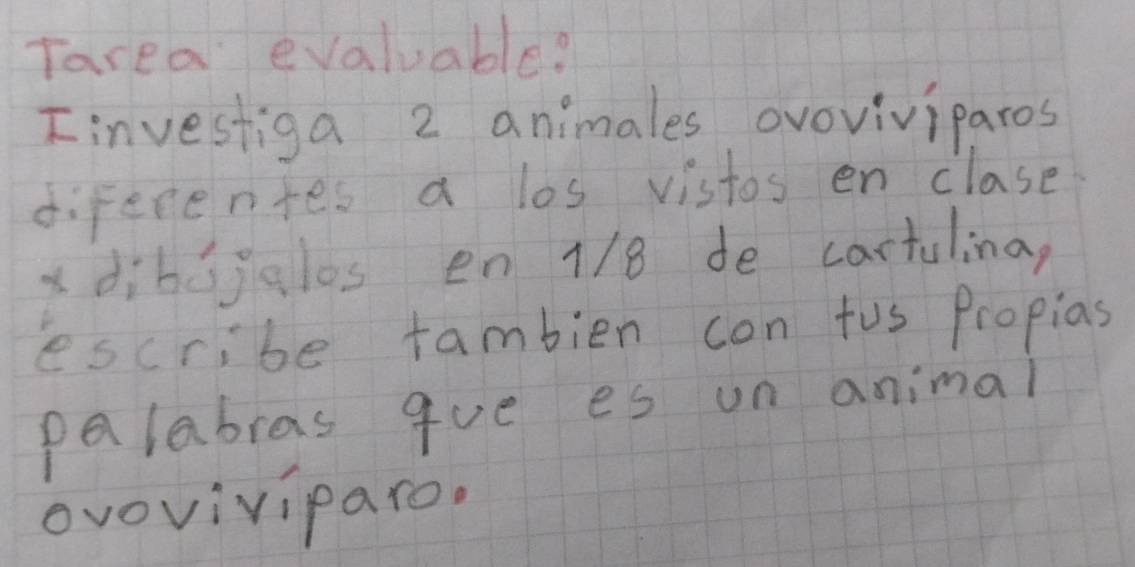 Tarea evaluable:
Iinvestiga 2 animales ovovivíparos
diferentes a los vistos en clase
x dibújalos en 1/8 de cartulina,
escribe tambien con tus Propias
palabras que es un animal
ovovivíparo.